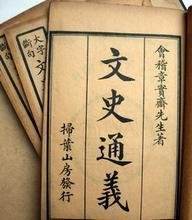 會稽章實齋先生著
文史通義
掃葉山房發行
大字
斷句
文